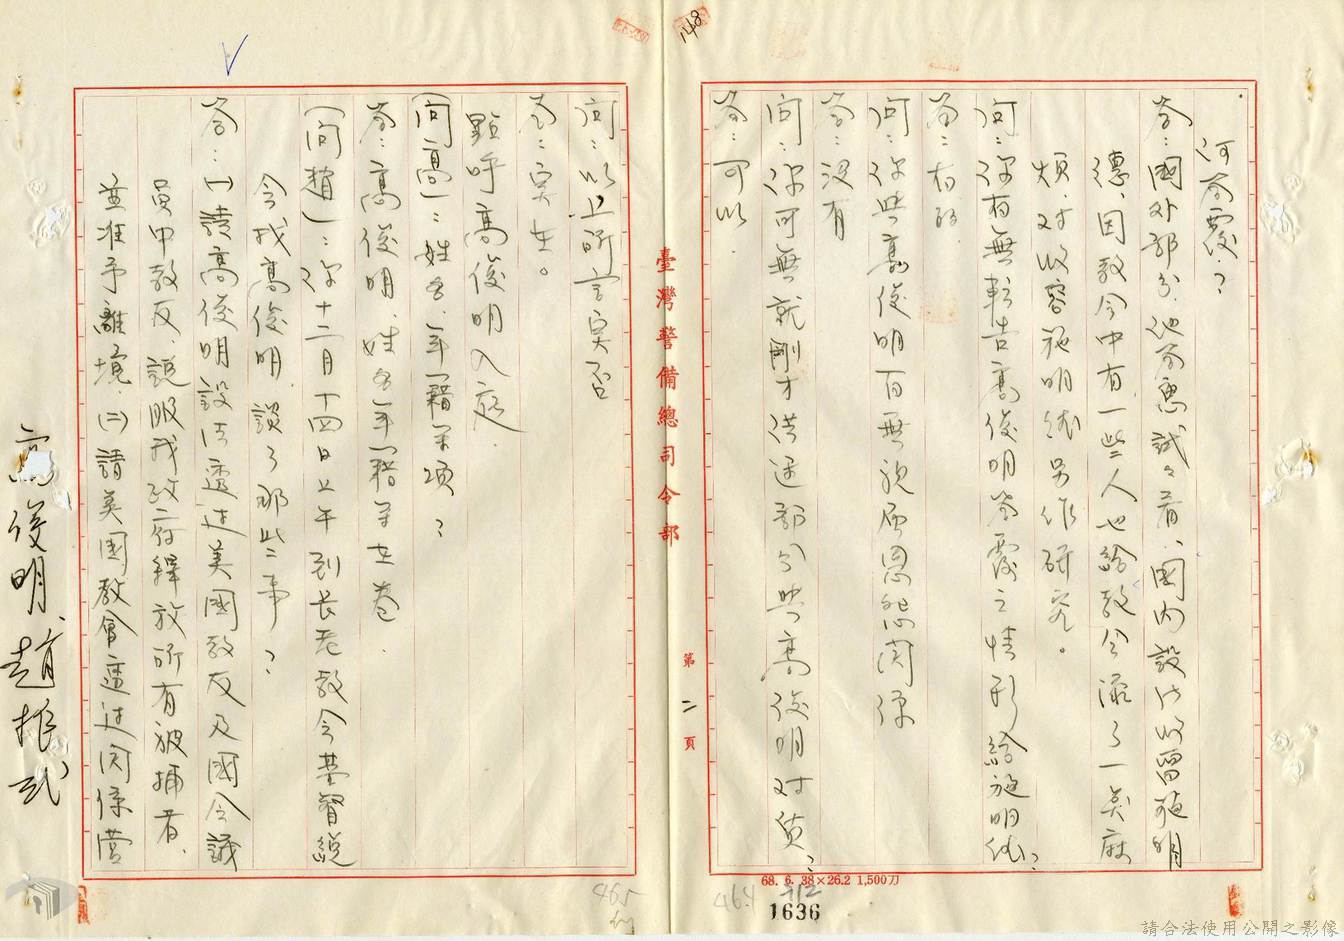 148
何答覆？
答：國外部分他答應試々看、國內設法收留施明
德、因教会中有一些人也給教会添了一點麻
煩、对收容施明德另作研究。
問：你有無轉告高俊明答覆之情形給施明德？
答：有的
問：你與高俊明有無親屬恩怨関係
答：沒有
問：你可無就剛才供述部分與高俊明对质？
答：可以．
臺灣警備總司令部
第二頁
問：以上所言实否
答：实在。
點呼高俊明入庭
(問高)：姓名、年籍等項？
答：高俊明、姓名年籍等在卷．
(問趙)：你十二月十四日上午到长老教会基督總
会找高俊明、談了那些事？
答：(一)請高俊明設法透过美國教友及國会議
員中教友、說服我政府釋放所有被捕者、
並准予離境、(二)請美國教會透过関係営
高俊明、趙振貳
68. 6. 38×26.2 1,500刀
464
212
1636
465
請合法使用公開之影像